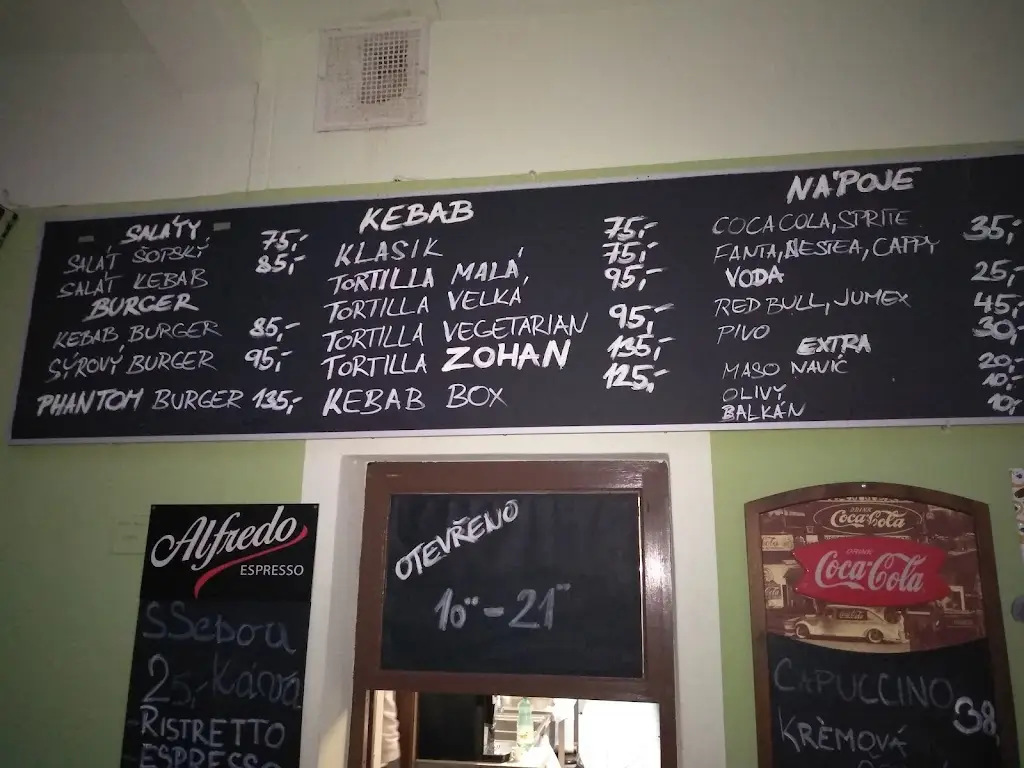 SALÁTY
SALÁT ŠOPSKÝ 75,-
SALÁT KEBAB 85,-
BURGER
KEBAB BURGER 85,-
SÝROVÝ BURGER 95,-
PHANTOM BURGER 135,-
KEBAB
KLASIK 75,-
TORTILLA MALÁ, 75,-
TORTILLA VELKÁ 95,-
TORTILLA VEGETARIAN 95,-
TORTILLA ZOHAN 135,-
KEBAB BOX 125,-
NÁPOJE
COCA COLA, SPRITE
FANTA, NESTEA, CAPPY 35,-
VODA 25,-
RED BULL, JUMEX 45,-
PIVO 30,-
EXTRA
MASO NAVÍC 20,-
OLIVY 10,-
BALKÁN 10,-
Alfredo
ESPRESSO
SSebou
25,- Káva
RISTRETTO
ESPRESSO
OTEVŘENO
10°° - 21°°
DRINK
Coca-Cola
DRINK
Coca-Cola
CAPUCCINO 38,
KRÈMOVÁ